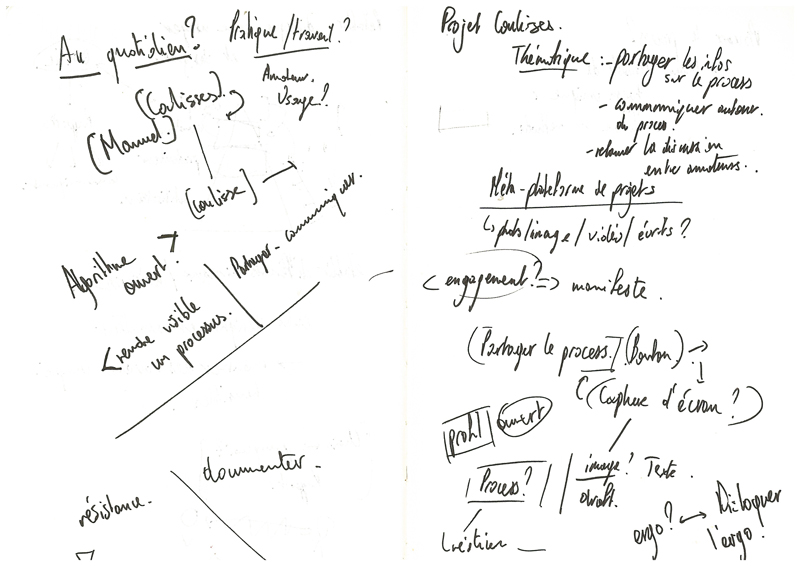 Au quotidien?
Pratique/travail?
Amateur.
Usage?
[Coulisses]
[Manuel]
[Coulisse]
Algorithme
ouvert?
Partager - communiquer.
rendre visible
un processus.
documenter.
résistance.
Projet Coulisses.
Thématique : - partager les infos
sur le process
- communiquer autour
du process.
- relancer la discussion
entre amateurs.
Méta-plateforme de projets
photo/image/vidéo/écrits?
engagement? => manifeste.
(Partager le process.) (Bouton)
(Capture d'écran?)
profil ouvert
Process? image? Texte.
ergo? Disloquer
l'ergo!